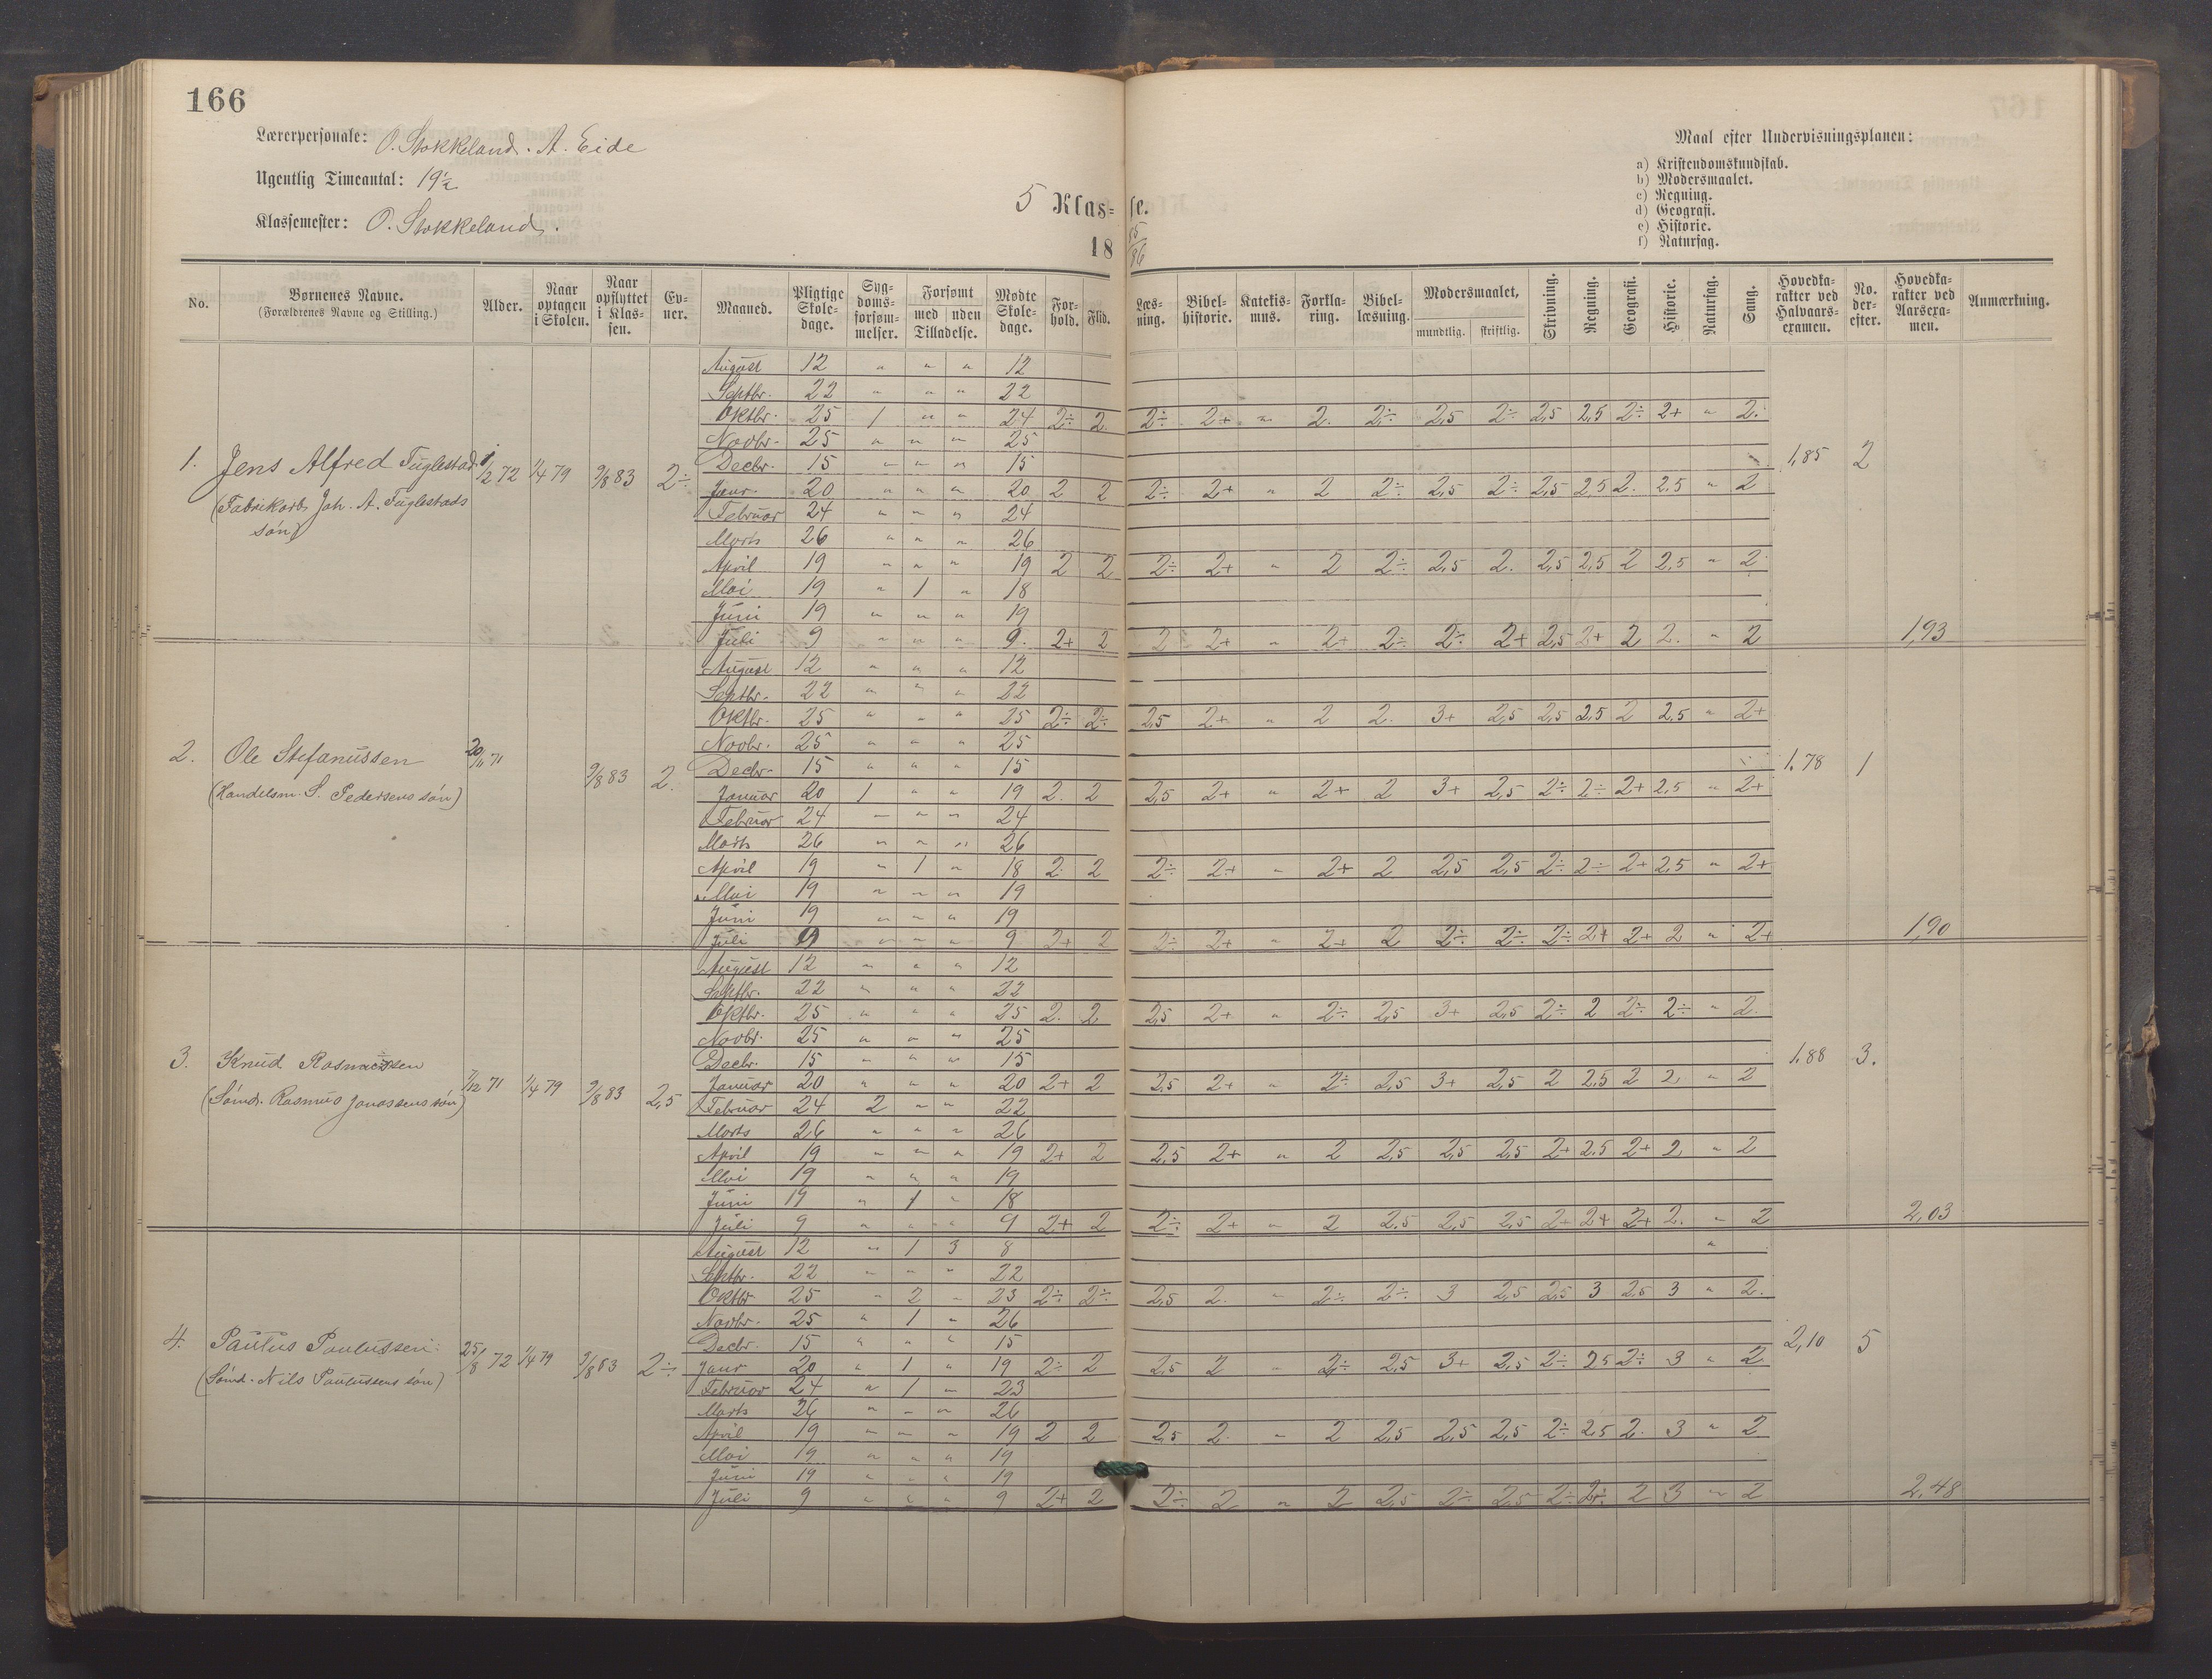 166
Lærerpersonale: O. Stokkeland. A. Eide
Ugentlig Timeantal: 19½
Klassemester: O. Stokkeland.
5 Klasse.
18 85/86
Maal efter Undervisningsplanen:
a) Kristendomskundskab.
b) Modersmaalet.
c) Regning.
d) Geografi.
e) Historie.
f) Naturfag.
No. Børnenes Navne. (Forældrenes Navne og Stilling.) Alder. Naar optagen i Skolen. Naar opflyttet i Klassen. Evner. Maaned. Pligtige Skoledage. Sygdomsforsømmelser. Forsømt med uden Tilladelse. Mødte Skoledage. Forhold. Flid. Læsning. Bibelhistorie. Katekismus. Forklaring. Bibellæsning. Modersmaalet, mundtlig. skriftlig. Skrivning. Regning. Geografi. Historie. Naturfag. Sang. Hovedkarakter ved Halvaarsexamen. No. derefter. Hovedkarakter ved Aarsexamen. Anmærkning.
1. Jens Alfred Tuglestad 1/2 72 1/4 79 9/8 83 2÷ 1,85 2
(Fabrikarb. Joh. A. Tuglestads søn)
August 12 " " " 12
Septbr. 22 " " " 22
Oktbr. 25 1 " " 24 2÷ 2 2÷ 2+ " 2. 2÷ 2,5 2÷ 2,5 2,5 2÷ 2+ " 2.
Novbr. 25 " " " 25
Decbr. 15 " " " 15
Janr. 20 " " " 20 2 2 2÷ 2+ " 2 2÷ 2,5 2÷ 2,5 2,5 2. 2,5 " 2
Februar 24 " " " 24
Marts 26 " " " 26
April 19 " " " 19 2 2 2÷ 2+ " 2 2÷ 2,5 2. 2,5 2,5 2 2,5 " 2
Mai 19 " 1 " 18
Juni 19 " " " 19
Juli 9 " " " 9. 2+ 2 2 2+ " 2+ 2÷ 2÷ 2+ 2,5 2+ 2 2. " 2 1,93
2. Ole Stefanussen 20/11 71 9/8 83 2. 1.78 1
(Handelsm. S. Pedersens søn)
August 12 " " " 12
Septbr. 22 " " " 22
Oktbr. 25 " " " 25 2÷ 2÷ 2,5 2+ " 2 2. 3+ 2,5 2,5 2,5 2 2,5 " 2+
Novbr. 25 " " " 25
Decbr. 15 " " " 15
Januar 20 1 " " 19 2. 2 2,5 2+ " 2+ 2 3+ 2,5 2÷ 2÷ 2+ 2,5 " 2+
Februar 24 " " " 24
Marts 26 " " " 26
April 19 " 1 " 18 2. 2 2÷ 2+ " 2+ 2 2,5 2,5 2÷ 2÷ 2+ 2,5 " 2+
Mai 19 " " " 19
Juni 19 " " " 19
Juli 9 " " " 9 2+ 2 2÷ 2+ " 2+ 2 2÷ 2÷ 2÷ 2+ 2+ 2 " 2+ 1,90
3. Knud Rasmussen 7/12 71 1/4 79 9/8 83 2,5 1.88 3.
(Sømd. Rasmus Jonassens søn)
August 12 " " " 12
Septbr. 22 " " " 22
Oktbr. 25 " " " 25 2. 2 2,5 2+ " 2÷ 2,5 3+ 2,5 2÷ 2 2÷ 2÷ " 2.
Novbr. 25 " " " 25
Decbr. 15 " " " 15
Januar 20 " " " 20 2+ 2 2,5 2+ " 2÷ 2,5 3+ 2,5 2 2,5 2 2. " 2
Februar 24 2 " " 22
Marts 26 " " " 26
April 19 " " " 19 2+ 2 2,5 2+ " 2 2,5 2,5 2,5 2+ 2.5 2+ 2 " 2
Mai 19 " " " 19
Juni 19 " 1 " 18
Juli 9 " " " 9 2+ 2 2÷ 2+ " 2 2,5 2,5 2,5 2+ 2+ 2+ 2. " 2 2,03
4. Paulus Paulussen. 25/8 72 1/4 79 9/8 83 2÷ 2,10 5
(Sømd. Nils Paulussens søn)
August 12 " 1 3 8 "
Septbr. 22 " " " 22
Oktbr. 25 " 2 " 23 2÷ 2÷ 2,5 2. " 2÷ 2÷ 3 2,5 2,5 3 2,5 3 " 2.
Novbr. 25 " 1 " 26
Decbr. 15 " " " 15
Janr. 20 " 1 " 19 2÷ 2 2,5 2 " 2÷ 2,5 3+ 2,5 2÷ 2,5 2÷ 3 " 2
Februar 24 " 1 " 23
Marts 26 " " " 26
April 19 " " " 19 2 2 2,5 2. " 2 2,5 2,5 2,5 2÷ 2,5 2. 3 " 2
Mai 19 " " " 19
Juni 19 " " " 19
Juli 9 " " " 9 2+ 2 2÷ 2 " 2 2,5 2÷ 2,5 2÷ 2÷ 2 3 " 2 2,48